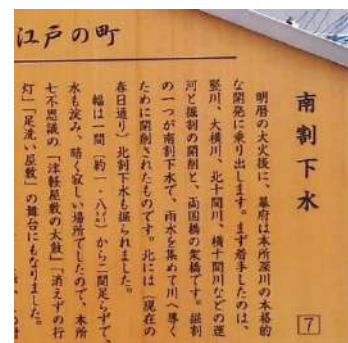 江戸の町
南割下水
7
明暦の大火後に、幕府は本所深川の本格的
な開発に乗り出します。まず着手したのは、
竪川、大横川、北十間川、横十間川などの運
河と掘割の開削と、両国橋の架橋です。掘割
の一つが南割下水で、雨水を集めて川へ導く
ために開削されたものです。北には（現在の
春日通り）北割下水も掘られました。
幅は一間（約一・八㍍）から二間足らずで、
水も淀み、暗く寂しい場所でしたので、本所
七不思議の「津軽屋敷の太鼓」「消えずの行
灯」「足洗い屋敷」の舞台にもなりました。